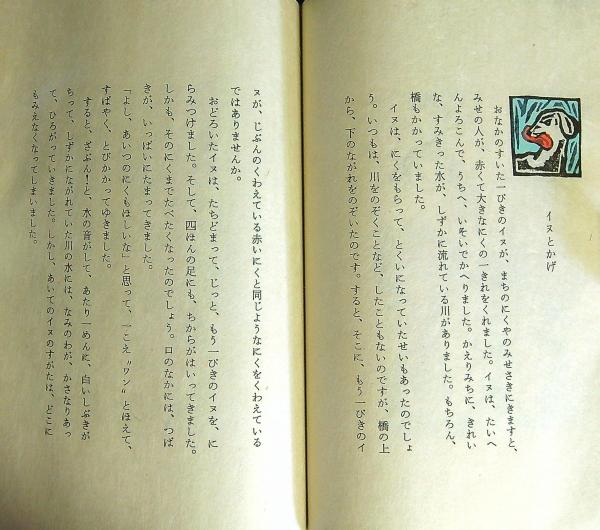 イヌとかげ
おなかのすいた一ぴきのイヌが、まちのにくやのみせさきにきますと、
みせの人が、赤くて大きなにくの一きれをくれました。イヌは、たいへ
んよろこんで、うちへ、いそいでかへりました。かえりみちに、きれい
な、すみきった水が、しずかに流れている川がありました。もちろん、
橋もかかっていました。
イヌは、にくをもらって、とくいになっていたせいもあったのでしょ
う。いつもは、川をのぞくことなど、したこともないのですが、橋の上
から、下のながれをのぞいたのです。すると、そこに、もう一ぴきのイ
ヌが、じぶんのくわえている赤いにくと同じようなにくをくわえている
ではありませんか。
おどろいたイヌは、たちどまって、じっと、もう一ぴきのイヌを、に
らみつけました。そして、四ほんの足にも、ちからがはいってきました。
しかも、そのにくまでたべたくなったのでしょう。口のなかには、つば
きが、いっぱいにたまってきました。
「よし、あいつのにくもほしいな」と思って、一こえ〝ワン〟とほえて、
すばやく、とびかかってゆきました。
すると、ざぶん!と、水の音がして、あたり一めんに、白いしぶきが
ちって、しずかにながれていた川の水には、なみのわが、かさなりあっ
て、ひろがってゆきました。しかし、あいてのイヌのすがたは、どこに
もみえなくなってしまいました。